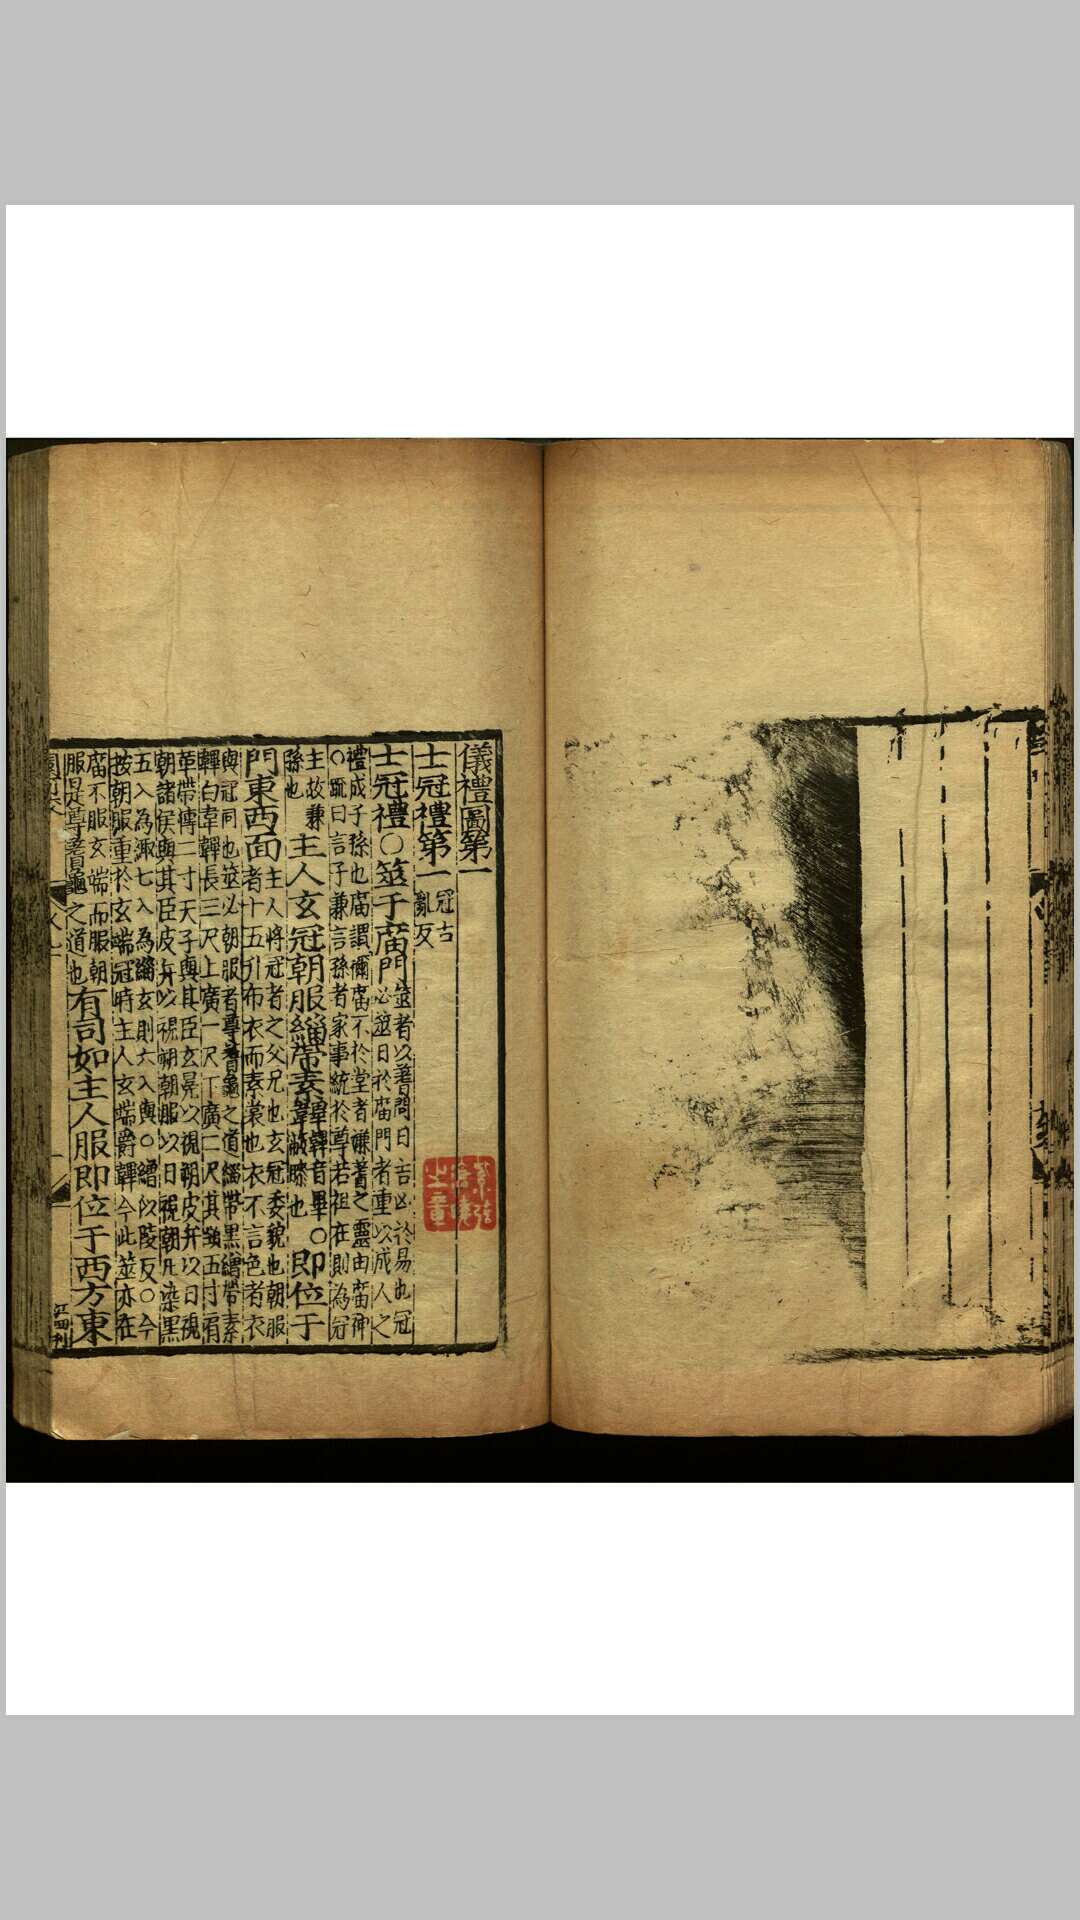 儀禮圖第一
士冠禮第一 冠古亂反
士冠禮○筮于廟門 筮者以蓍問日吉凶於易也冠
必筮日於廟門者重以成人之
禮成子孫也廟謂禰廟不於堂者嫌蓍之靈由廟神
○疏曰言子兼言孫者家事統於尊若祖在則為冠
主故兼
孫也 主人玄冠朝服緇帶素韠 韠音畢○ 即位于
門東西面 主人將冠者之父兄也玄冠委貌也朝服
者十五升布衣而素裳也衣不言色者衣
與冠同也筮必朝服者尊蓍龜之道緇帶黑繒帶素
韠白韋韠長三尺上廣一尺下廣二尺其頸五寸肩
革帶博二寸天子與其臣玄冕以視朔皮弁以日視
朝諸侯與其臣皮弁以視朔朝服以日視朝凡染黑
五入為緅七入為緇玄則六入與○繒似陵反○今
按朝服重於玄端冠時主人玄端爵韠今此筮亦在
廟不服玄端而服朝
服是尊蓍龜之道也 有司如主人服即位于西方東